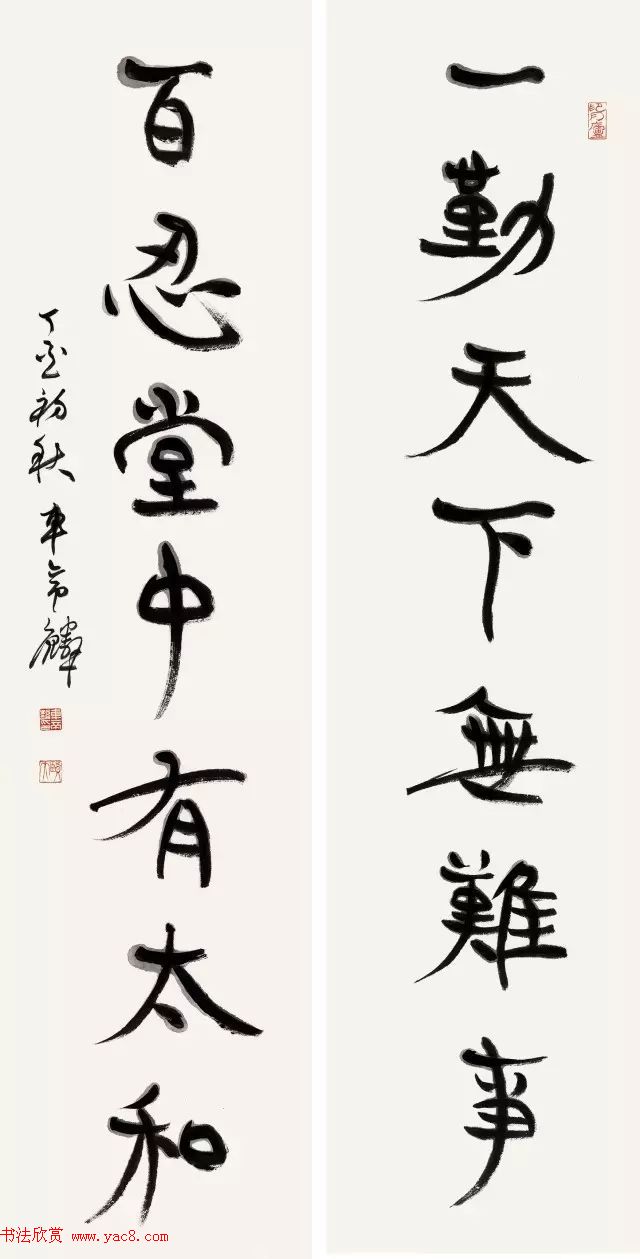 一勤天下無難事
百忍堂中有太和
丁酉初秋 車帝麟
书法欣赏 www.yac8.com